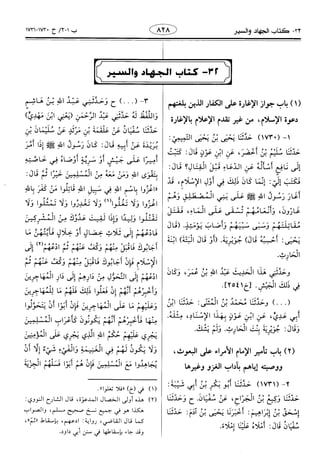 ٣٢- كتاب الجهاد والسير
٨٢٨
ب ٢،١/ ح ١٧٣٠-١٧٣١
٣٢- كتاب الجهاد والسير
(١) باب جواز الإغارة على الكفار الذين بلغتهم
دعوة الإسلام، من غير تقدم الإعلام بالإغارة
١- (١٧٣٠) حَدَّثَنَا يَحْيَى بْنُ يَحْيَى التَّمِيمِيُّ:
حَدَّثَنَا سُلَيْمُ بْنُ أَخْضَرَ، عَنِ ابْنِ عَوْنٍ قَالَ: كَتَبْتُ
إِلَى نَافِعٍ أَسْأَلُهُ عَنِ الدُّعَاءِ قَبْلَ الْقِتَالِ؟ قَالَ:
فَكَتَبَ إِلَيَّ: إِنَّمَا كَانَ ذَلِكَ فِي أَوَّلِ الْإِسْلَامِ، قَدْ
أَغَارَ رَسُولُ اللهِ ﷺ عَلَى بَنِي الْمُصْطَلِقِ وَهُمْ
غَارُّونَ، وَأَنْعَامُهُمْ تُسْقَى عَلَى الْمَاءِ، فَقَتَلَ
مُقَاتِلَتَهُمْ وَسَبَى سَبْيَهُمْ وَأَصَابَ يَوْمَئِذٍ. (قَالَ
يَحْيَى: أَحْسِبُهُ قَالَ) جُوَيْرِيَةَ. أَوْ قَالَ الْبَتَّةَ: ابْنَةَ
الْحَارِثِ.
وَحَدَّثَنِي هَذَا الْحَدِيثَ عَبْدُ اللهِ بْنُ عُمَرَ، وَكَانَ
فِي ذَلِكَ الْجَيْشِ. [خ: ٢٥٤١]
(...) وَحَدَّثَنَا مُحَمَّدُ بْنُ الْمُثَنَّى: حَدَّثَنَا ابْنُ
أَبِي عَدِيٍّ، عَنِ ابْنِ عَوْنٍ بِهَذَا الْإِسْنَادِ، مِثْلَهُ.
وَقَالَ: جُوَيْرِيَةَ بِنْتَ الْحَارِثِ. وَلَمْ يَشُكَّ.
(٢) باب تأمير الإمام الأمراء على البعوث،
ووصيته إياهم بآداب الغزو وغيرها
٢- (١٧٣١) حَدَّثَنَا أَبُو بَكْرِ بْنُ أَبِي شَيْبَةَ:
حَدَّثَنَا وَكِيعُ بْنُ الْجَرَّاحِ، عَنْ سُفْيَانَ. ح وَحَدَّثَنَا
إِسْحَقُ بْنُ إِبْرَاهِيمَ: أَخْبَرَنَا يَحْيَى بْنُ آدَمَ: حَدَّثَنَا
سُفْيَانُ قَالَ: أَمْلَاهُ عَلَيْنَا إِمْلَاءً.
٣- (...) ح وَحَدَّثَنِي عَبْدُ اللهِ بْنُ هَاشِمٍ
وَاللَّفْظُ لَهُ حَدَّثَنِي عَبْدُ الرَّحْمَنِ (يَعْنِي ابْنَ مَهْدِيٍّ)
حَدَّثَنَا سُفْيَانُ عَنْ عَلْقَمَةَ بْنِ مَرْثَدٍ عَنْ سُلَيْمَانَ بْنِ
بُرَيْدَةَ عَنْ أَبِيهِ قَالَ: كَانَ رَسُولُ اللهِ ﷺ إِذَا أَمَّرَ
أَمِيرًا عَلَى جَيْشٍ أَوْ سَرِيَّةٍ أَوْصَاهُ فِي خَاصَّتِهِ
بِتَقْوَى اللهِ وَمَنْ مَعَهُ مِنَ الْمُسْلِمِينَ خَيْرًا ثُمَّ قَالَ:
«اغْزُوا بِاسْمِ اللهِ فِي سَبِيلِ اللهِ قَاتِلُوا مَنْ كَفَرَ بِاللهِ
اغْزُوا وَلَا تَغُلُّوا(١) وَلَا تَغْدِرُوا وَلَا تَمْثُلُوا وَلَا
تَقْتُلُوا وَلِيدًا وَإِذَا لَقِيتَ عَدُوَّكَ مِنَ الْمُشْرِكِينَ
فَادْعُهُمْ إِلَى ثَلَاثِ خِصَالٍ أَوْ خِلَالٍ فَأَيَّتُهُنَّ مَا
أَجَابُوكَ فَاقْبَلْ مِنْهُمْ وَكُفَّ عَنْهُمْ ثُمَّ ادْعُهُمْ(٢) إِلَى
الْإِسْلَامِ فَإِنْ أَجَابُوكَ فَاقْبَلْ مِنْهُمْ وَكُفَّ عَنْهُمْ ثُمَّ
ادْعُهُمْ إِلَى التَّحَوُّلِ مِنْ دَارِهِمْ إِلَى دَارِ الْمُهَاجِرِينَ
وَأَخْبِرْهُمْ أَنَّهُمْ إِنْ فَعَلُوا ذَلِكَ فَلَهُمْ مَا لِلْمُهَاجِرِينَ
وَعَلَيْهِمْ مَا عَلَى الْمُهَاجِرِينَ فَإِنْ أَبَوْا أَنْ يَتَحَوَّلُوا
مِنْهَا فَأَخْبِرْهُمْ أَنَّهُمْ يَكُونُونَ كَأَعْرَابِ الْمُسْلِمِينَ
يَجْرِي عَلَيْهِمْ حُكْمُ اللهِ الَّذِي يَجْرِي عَلَى الْمُؤْمِنِينَ
وَلَا يَكُونُ لَهُمْ فِي الْغَنِيمَةِ وَالْفَيْءِ شَيْءٌ إِلَّا أَنْ
يُجَاهِدُوا مَعَ الْمُسْلِمِينَ فَإِنْ هُمْ أَبَوْا فَسَلْهُمُ الْجِزْيَةَ
(١) في (خ) «فلا تغلوا».
(٢) هذه أولى الخصال المدعوّة، قال الشارح النووي:
هكذا هو في جميع نسخ صحيح مسلم، والصواب
كما قال القاضي، رواية: ادعهم، بإسقاط «ثم»،
وقد جاء بإسقاطها في سنن أبي داود.